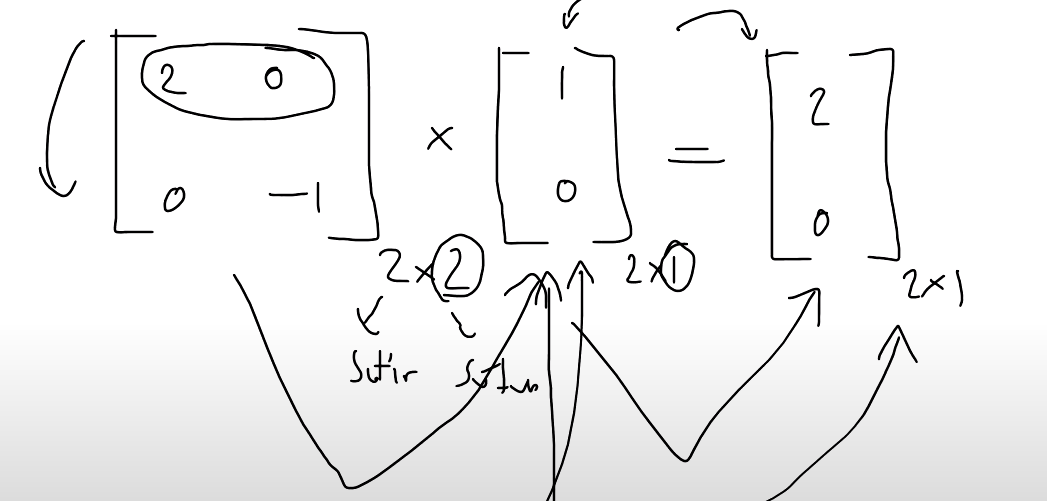 2 0 × 1 = 2
0 -1 0 0
2×2 2×1 2×1
Satır Sütun